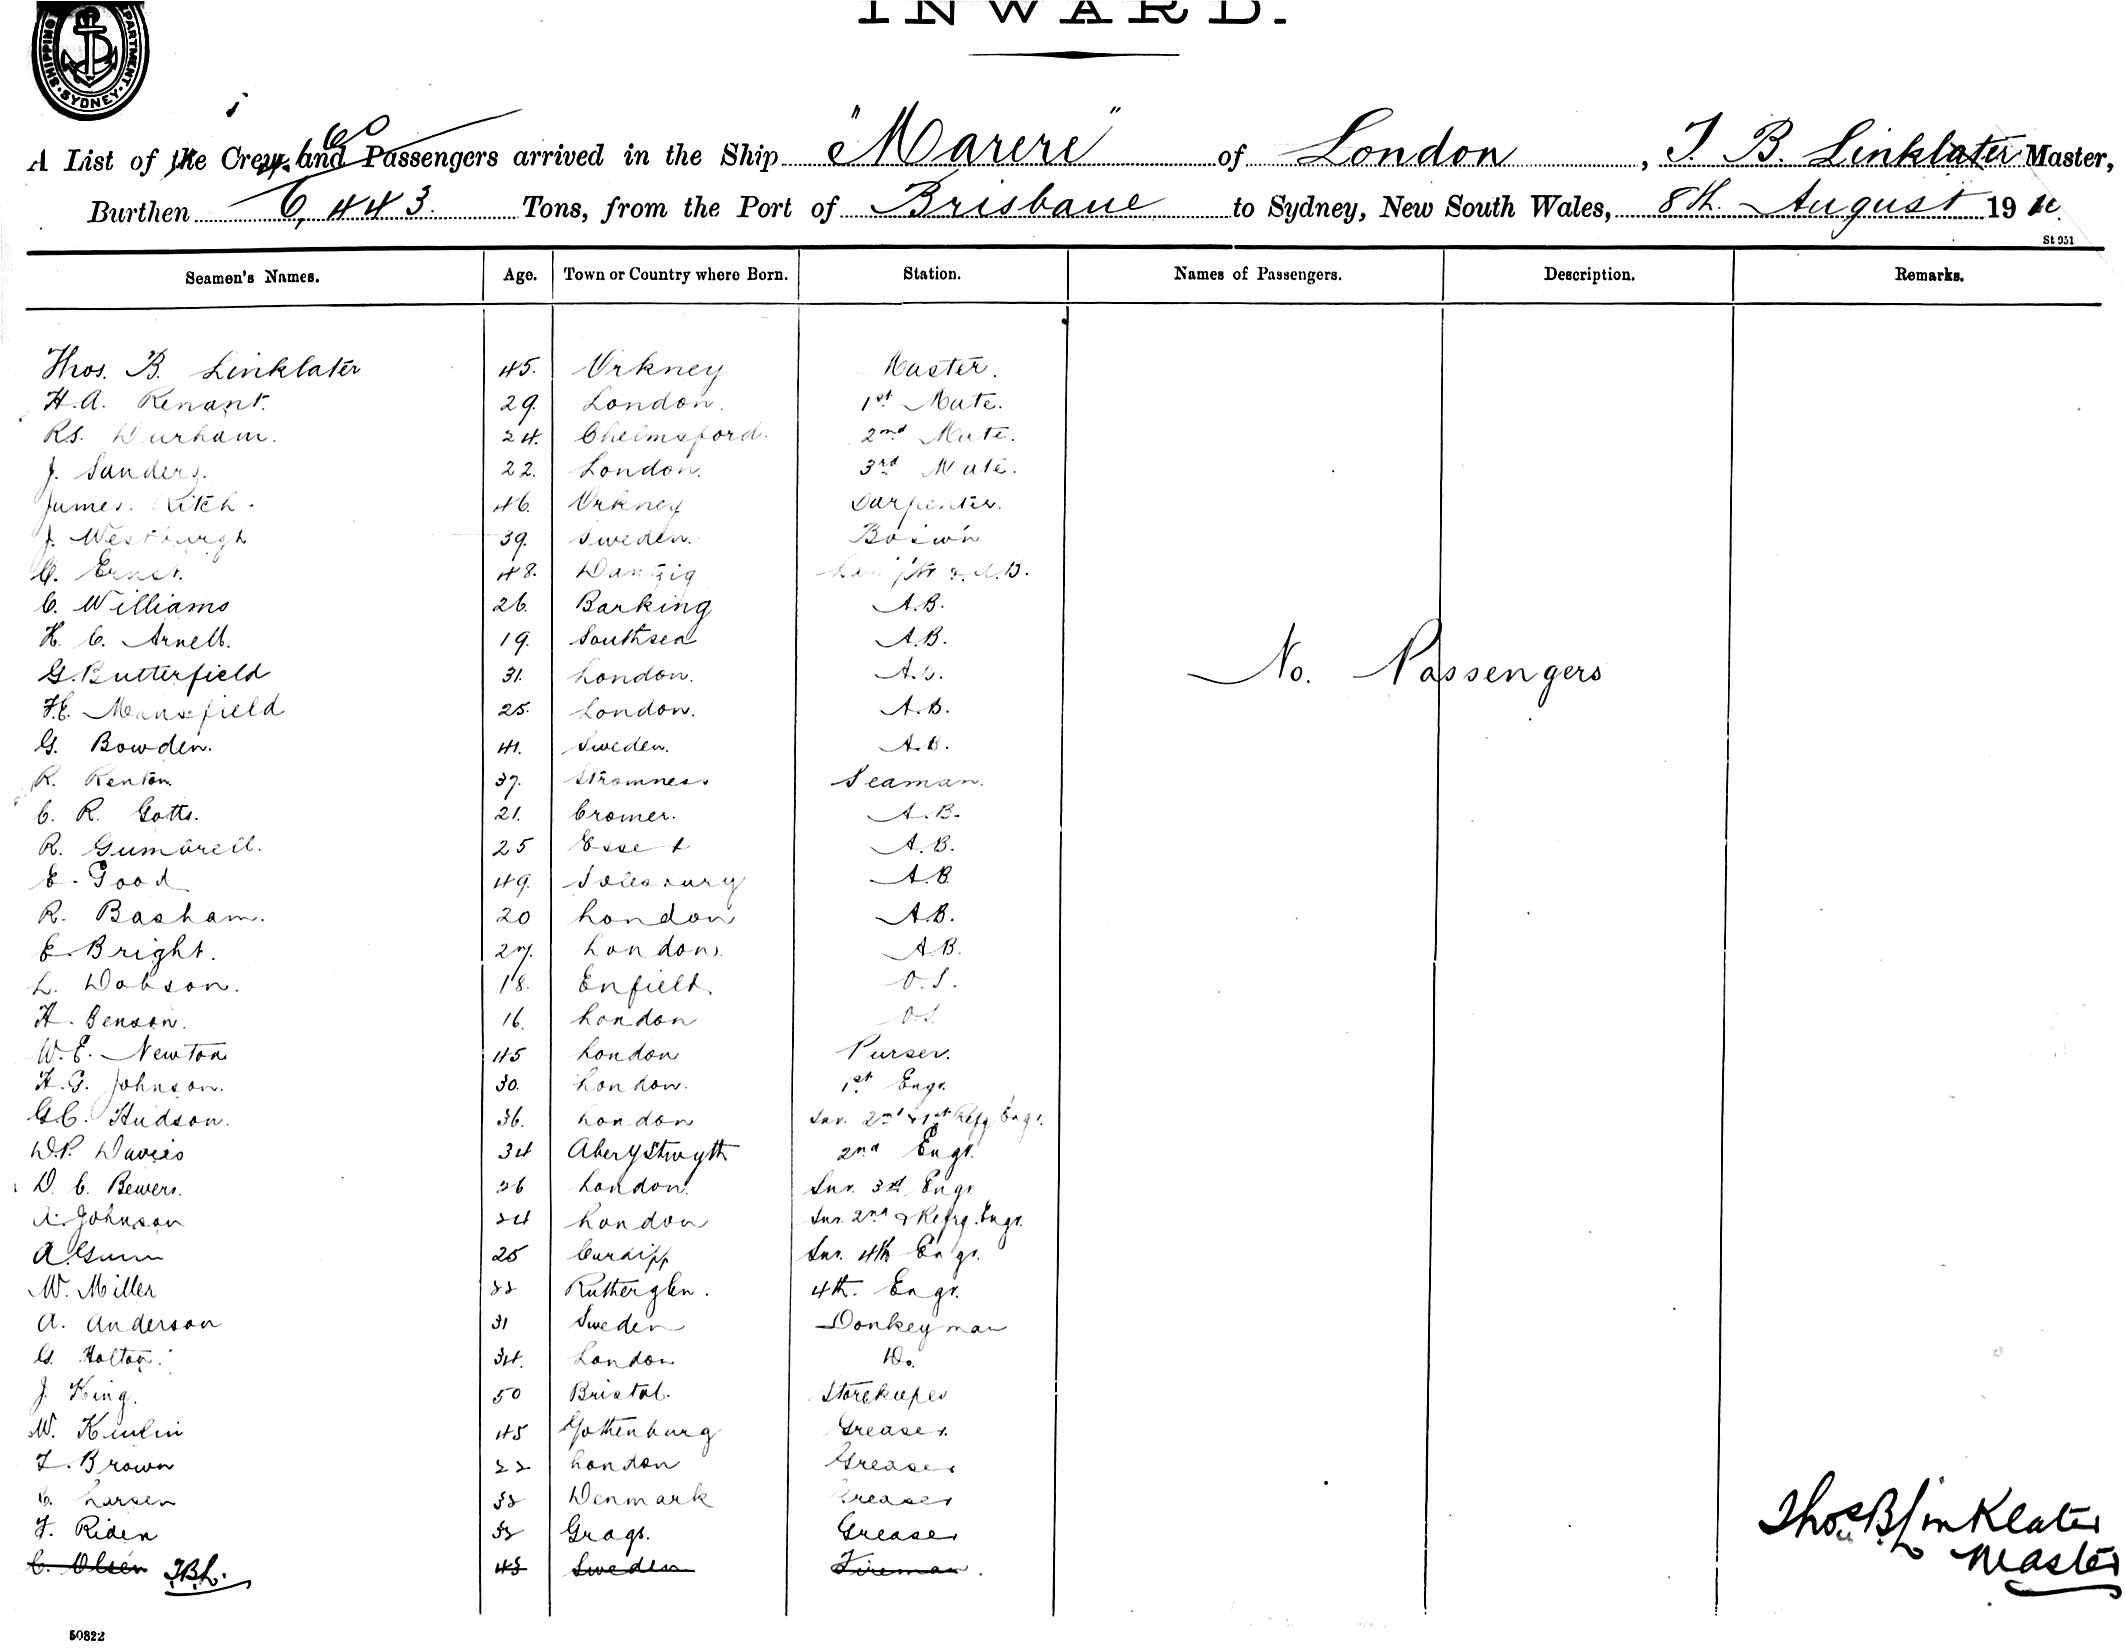 INWARD.
SHIPPING DEPARTMENT. SYDNEY.
60
A List of the Crew and Passengers arrived in the Ship "Marere" of London, T. B. Linklater Master,
Burthen 6,443. Tons, from the Port of Brisbane to Sydney, New South Wales, 8th August 19
St 951
Seamen's Names. Age. Town or Country where Born. Station. Names of Passengers. Description. Remarks.
Thos. B. Linklater 45. Orkney Master.
H.A. Renant. 29. London. 1st Mate.
RS. Durham. 24. Chelmsford. 2nd Mate.
J. Sanders. 22. London. 3rd Mate.
James. Ritch. 46. Orkney Carpenter.
J. Westburgh 39. Sweden. Bos'wn
C. Ernst. 48. Dantzig A.B.
C. Williams 26. Barking A.B.
H. C. Arnell. 19. Southsea A.B.
G. Butterfield 31. London. A.B.
No. Passengers
F.E. Mansfield 25. London. A.B.
G. Bowden. 41. Sweden. A.B.
R. Renton. 37. Stromness Seaman.
C. R. Gotts. 21. Cromer. A.B.
R. Gumbrell. 25 Essex A.B.
E. Good 49. A.B.
R. Basham. 20 London A.B.
E. Bright. 27. London. A.B.
L. Dobson. 18. Enfield. O.S.
H. Benson. 16. London O.S.
W.E. Newton 45 London Purser.
H.G. Johnson. 30. London. 1st Engr.
G.C. Hudson. 36. London Snr. 2nd & 1st Refg Engr.
D.P. Davies 34 Aberystwyth 2nd Engr.
D. C. Bewers. 26 London. Snr. 3rd Engr
Johnson 24 London Snr. 2nd & Refrg. Engr.
A. Gunn 25 Cardiff Snr. 4th Engr.
W. Miller 22 Rutherglen. 4th. Engr.
A. Anderson 31 Sweden Donkeyman
G. Holton. 34. London Do.
J. King. 50 Bristol. Storekeeper
W. 45 Gothenburg Greaser.
T. Brown 22 London Greaser
C. Larsen Denmark Greaser
F. Riden Grays. Greaser
Thos B Linklater
Master
C. Olsen T.B.L. 43 Sweden Fireman.
50822